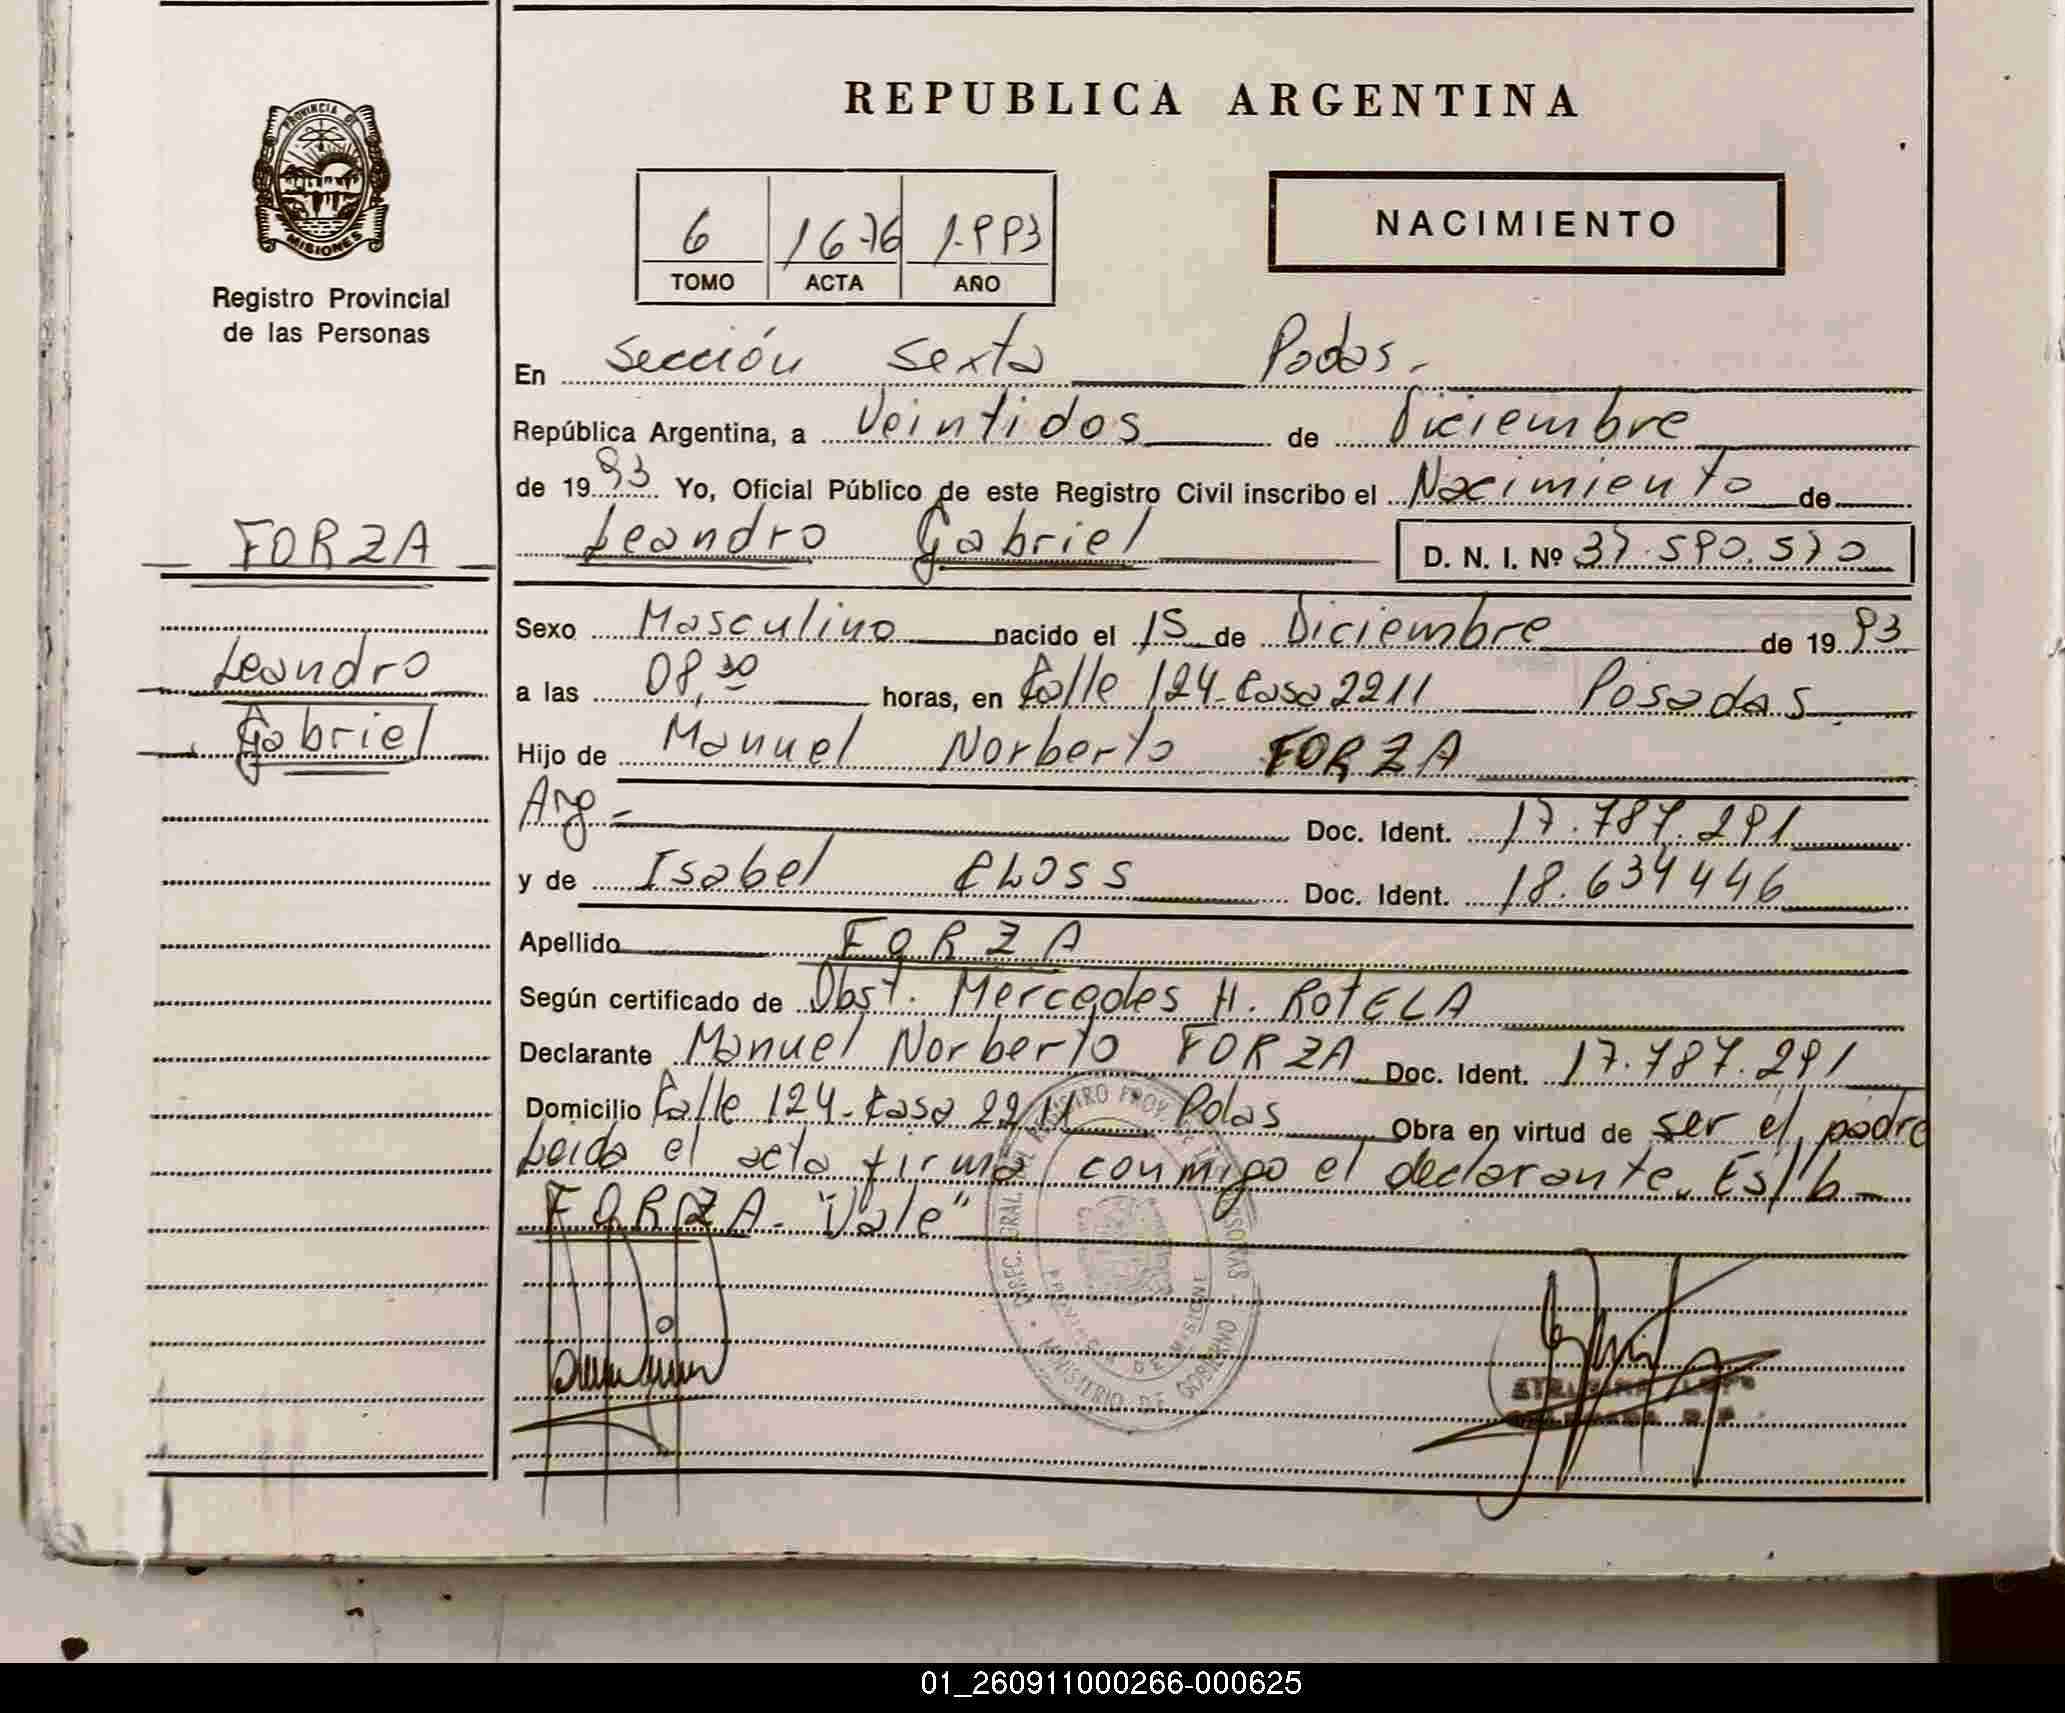 REPUBLICA ARGENTINA
PROVINCIA DE
MISIONES
Registro Provincial
de las Personas
NACIMIENTO
6 1676 1.993
TOMO ACTA AÑO
En Sección Sexta Podas.
República Argentina, a Veintidos de Diciembre
de 1993 Yo, Oficial Público de este Registro Civil inscribo el Nacimiento de
Leandro Gabriel D. N. I. Nº 37.590.570
FORZA
Leandro
Gabriel
Sexo Masculino nacido el 15 de Diciembre de 1993
a las 08,30 horas, en Calle 124-Casa 2211 Posadas
Hijo de Manuel Norberto FORZA
Arg - Doc. Ident. 17.787.291
y de Isabel CLOSS Doc. Ident. 18.634446
Apellido FORZA
Según certificado de Obst. Mercedes H. ROTELA
Declarante Manuel Norberto FORZA Doc. Ident. 17.787.291
Domicilio Calle 124-Casa 2211 Pdas Obra en virtud de ser el padre
Leida el acta firma conmigo el declarante. Es/b-
FORZA- "Vale"
DIREC. GRAL. DEL REGISTRO PROV. DE LAS PERSONAS
PROVINCIA DE MISIONES
MINISTERIO DE GOBIERNO
01_260911000266-000625